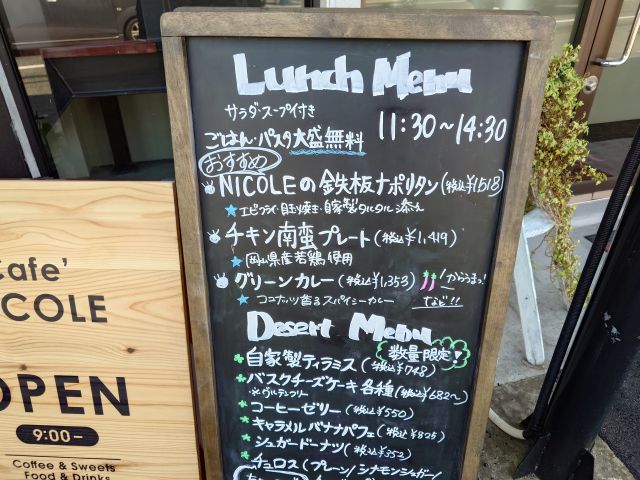 Lunch Menu
サラダ・スープ付き
ごはん・パスタ大盛無料
11:30~14:30
おすすめ
NICOLEの鉄板ナポリタン(税込¥1,518)
★エビフライ・目玉焼き・自家製タルタル添え
チキン南蛮プレート(税込¥1,419)
★岡山県産若鶏使用
グリーンカレー(税込¥1,353)
★ココナッツ香るスパイシーカレー
Desert Menu
数量限定!
自家製ティラミス(税込¥748)
バスクチーズケーキ各種(税込¥682~)
コーヒーゼリー(税込¥550)
キャラメルバナナパフェ(税込¥825)
シュガードーナツ(税込¥352)
チュロス(プレーン/シナモンシュガー/
Cafe'
ICOLE
OPEN
9:00–
Coffee & Sweets
Food & Drinks